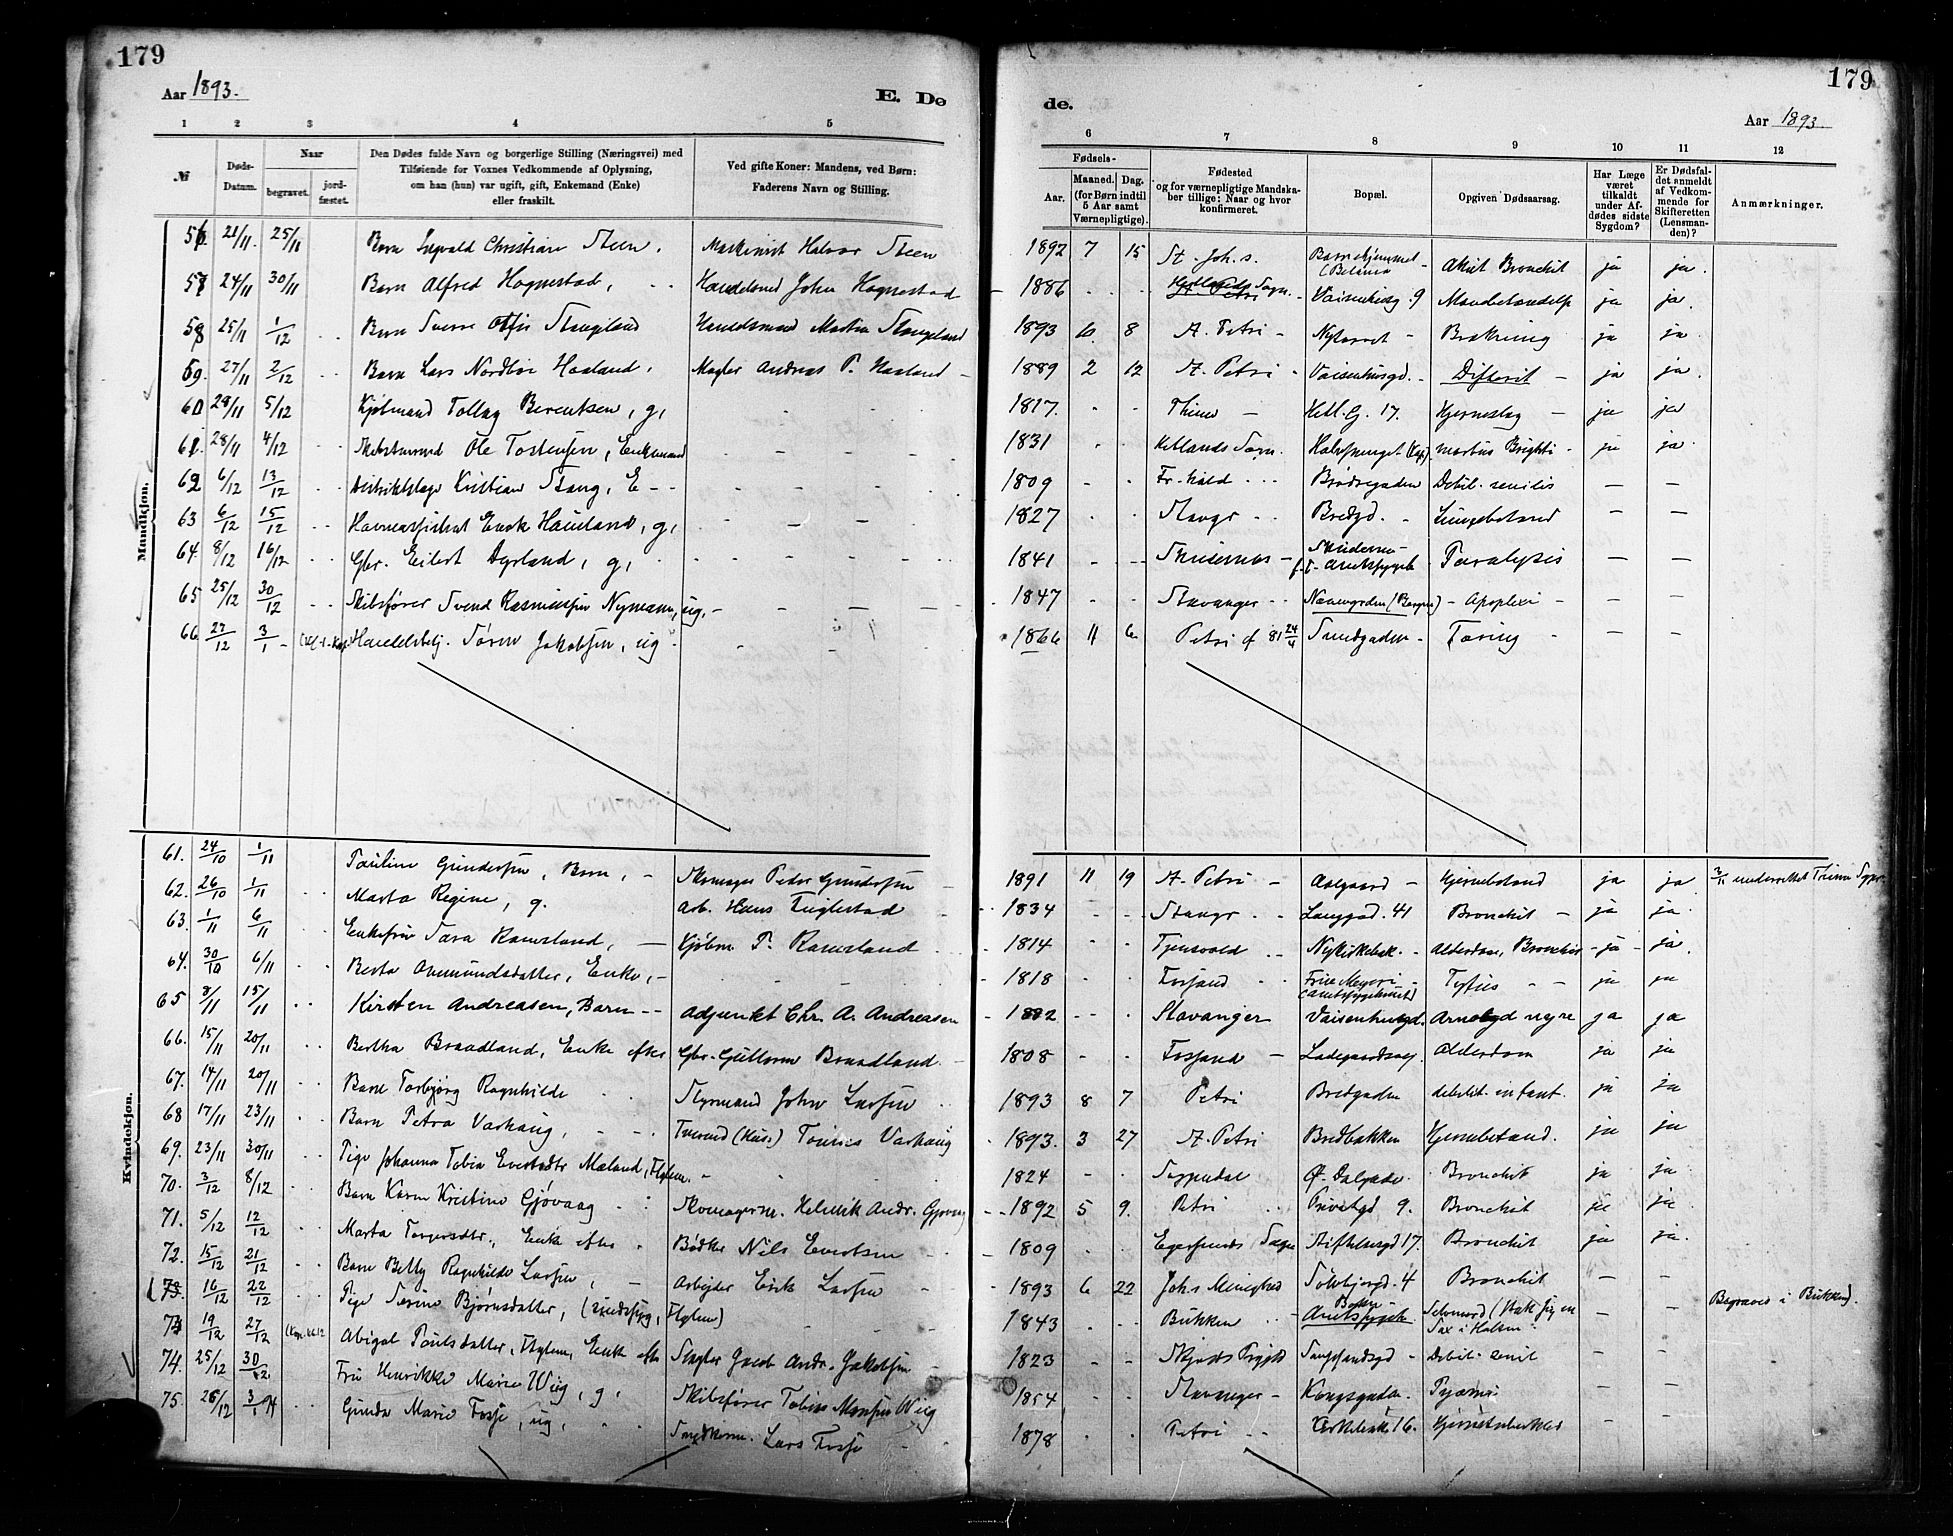 179
Aar 1893.
E. Dø
1 2 3 4 5
№
Døds-Datum.
Naar
begravet.
jord-fæstet.
Den Dødes fulde Navn og borgerlige Stilling (Næringsvei) med
Tilføiende for Voxnes Vedkommende af Oplysning,
om han (hun) var ugift, gift, Enkemand (Enke)
eller fraskilt.
Ved gifte Koner: Mandens, ved Børn:
Faderens Navn og Stilling.
Mandkjøn.
56. 21/11. 25/11 Barn Sigvald Christian Steen, Maskinist Halvor Steen
57 24/11 30/11 Barn Alfred Hognestad, Handelsmd John Hognestad
58 25/11 1/12 Barn Sverre Stangeland Handelsmand Martin Stangeland
59. 27/11 2/12 Barn Lars Nordbø Haaland, Mægler Andreas P. Haaland
60 28/11 5/12 Kjøbmand Tollag Berentsen, g,
61. 28/11 4/12 Ole Tostensen, Enkemand
62 6/12 13/12 Distriktslæge Kristian Stang, E
63 6/12 15/12 Haaland, g,
64 8/12 16/12 Gbr. Eilert Dyrland, g,
65 25/12 30/12 Skibsfører Svend Rasmussen Nymann, ug,
66 27/12 3/1 Handelsbetj. Søren Jakobsen, ug
Kvindekjøn.
61. 24/10 1/11 Pauline Gundersen, Barn, Skomager Peder Gundersen
62. 26/10 1/11 Marta Regine, g. Arb. Hans Tuglestad
63. 1/11 6/11 Enkefru Sara Ramsland, Kjøbm P. Ramsland
64. 30/10 6/11 Berta Aamundsdatter, Enke,
65 8/11 15/11 Kirsten Andreasen, Barn Adjunkt Chr. A. Andreasen
66. 15/11 20/11 Bertha Braadland, Enke efter Gbr. Guttorm Braadland
67. 14/11 20/11 Barn Torbjørg Ragnhilde Styrmand John Larsen
68 17/11 23/11 Barn Petra Varhaug, Tønnes Varhaug
69. 23/11 30/11 Pige Johanna Tobia Maland,
70. 3/12 8/12 Barn Karen Kristine Gjøvaag Skomagerm. Helmik Andr. Gjøvaag
71. 5/12 12/12 Marta Torgersdtr., Enke efter Bødker Nils Evertsen
72. 15/12 21/12 Barn Betty Ragnhilde Larsen, Arbeider Erik Larsen
73. 16/12 22/12 Pige Serine Bjørnsdatter, (sindssyg,
73 19/12 27/12 Abigal Poulsdatter, Enke efter Slagter Jacob Andr. Jakobsen
74. 25/12 30/12 Fru Henrikke Marie Wiig, g, Skibsfører Tobias Monsen Wiig
75. 26/12 3/1 94 Gunda Marie Fosse, ug, Lars Fosse
179
de.
Aar 1893.
6 7 8 9 10 11 12
Fødsels-
Aar.
Maaned. Dag.
(for Børn indtil
5 Aar samt
Værnepligtige).
Fødested
og for værnepligtige Mandska-
ber tillige: Naar og hvor
konfirmeret.
Bopæl.
Opgiven Dødsaarsag.
Har Læge
været
tilkaldt
under Af-
dødes sidste
Sygdom?
Er Dødsfal-
det anmeldt
af Vedkom-
mende for
Skifteretten
(Lensman-
den)?
Anmærkninger.
1892 7 15 St. Joh. s. Barnehjemmet (Betania Akut Bronchit ja ja.
1886 Hetlands Sogn. Vaisenhusg. 9 ja ja.
1893 6 8 St. Petri Nytorvet Brækning ja ja.
1889 2 12 St. Petri Vaisenhusgd. Difterit ja ja.
1817. Thime Ketl. G. 17. Hjerneslag ja ja
1831 Hetlands Sogn. morbus Brighti ja ja.
1809 Fr. hald Brødregaden Debil. senilis
1827 Stavgr Bredgd. Lungebetænd
1841 Skudernes Paralysis
1847 Stavanger (Bergen) Apoplexi
1866 11 6 Petri cf 81 24/4 Smedgaden Tæring
1891 11 19 St. Petri Aalgaard Hjernebetænd ja ja 2/11 underrettet
1834 Stavgr Langgad. 41 Bronchit ja ja.
1814 Nykirkebak. Alderdom, Bronchit ja ja.
1818 Fossand (Amtssygehuset) Tyfus ja ja
1882 Stavanger Vaisenhusgd. ja ja
1808 Fossand Ladegaardsvej Alderdom ja ja
1893 8 7 Petri Bredgaden debilit. infant. ja ja
1893. 3 27 St. Petri Bredbakken Hjernebetænd. ja ja
1824 Soggendal Ø. Dalgade Bronchit ja ja
1892 5 9. Petri Privatgd 9. Bronchit ja ja
1809 Egersunds Sogn 17. Bronchit ja ja.
1893 6 22 Johs Menighed Sølvbjergd. 4 Bronchit
1843 Bukken Amtssygeh. Selvmord (stak sig en Sax i Halsen Begravet i Bukken).
1823 Debil. senil
1854 Stavanger Kongsgaden Pyæmi
1878 Petri 16. Hjernetuberkler